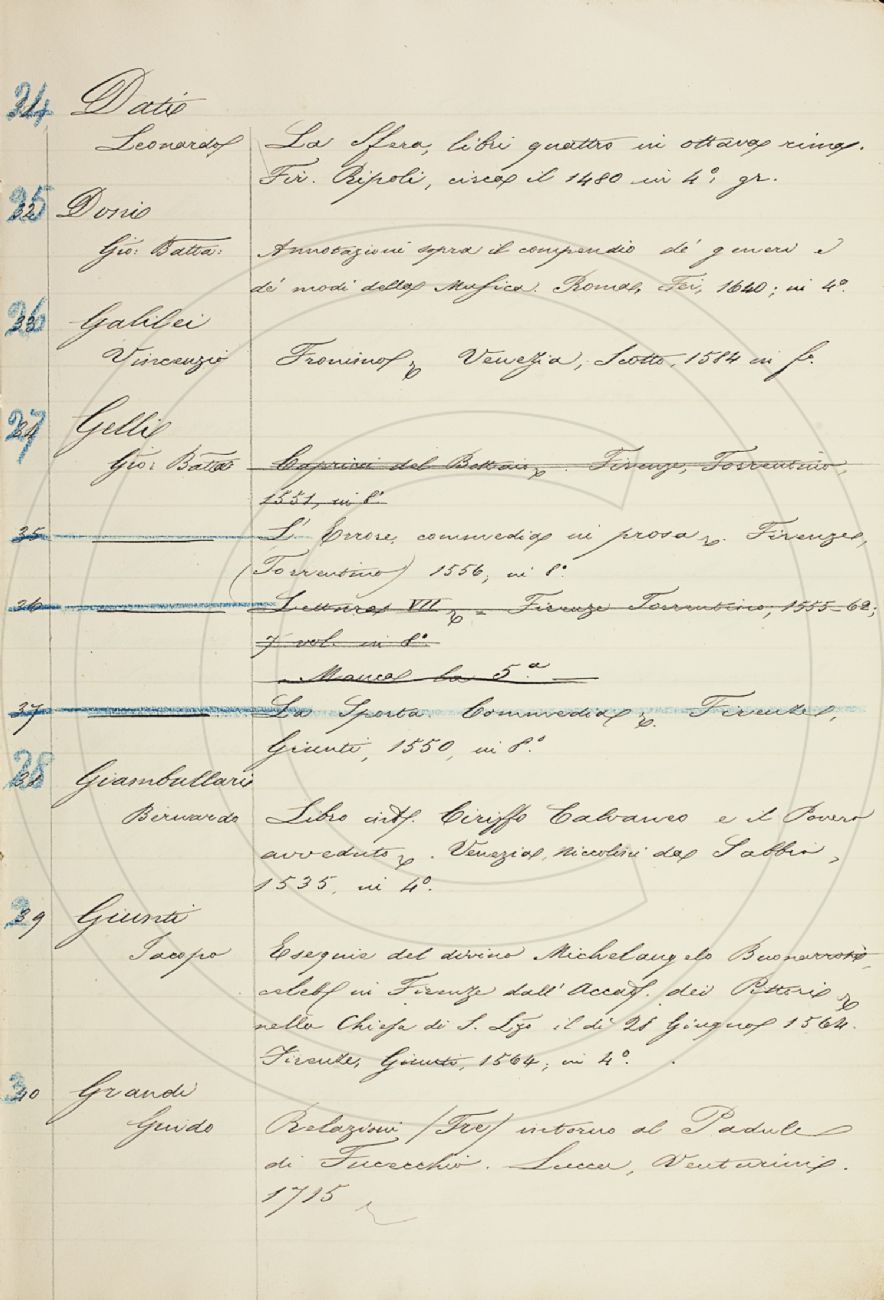 24 Dati
Leonardo La Sfera, libri quattro in ottava rima.
Fir. Ripoli, circa il 1480 in 4º. gr.
25 Doni
Gio: Batta: Annotazioni sopra il compendio de' generi e
de' modi della Musica. Roma, Fei, 1640; in 4º.
26 Galilei
Vincenzio Fronimo & Venezia, Scotto, 1584 in fº.
27 Gelli
Gio: Batta Capricci del Bottaio &. Firenze, Torrentino,
1551, in 8º
35 L'Errore, commedia in prosa &. Firenze,
(Torrentino) 1556, in 8º.
36 Letture VII & - Firenze Torrentino, 1555-62;
7 vol. in 8º
- Manca la 5.ª -
37 La Sporta. Commedia &. Firenze,
Giunti, 1550, in 8º
28 Giambullari
Bernardo Libro int. Ciriffo Calvaneo e il Povero
avveduto &. Venezia, Niccolini da Sabbio,
1535, in 4º.
39 Giunti
Jacopo Esequie del divino Michelangelo Buonarroti
celeb. in Firenze dall' Accad. dei Pittori &
nella Chiesa di S. Lzo il dì 28 Giugno 1564.
Firenze, Giunti, 1564; in 4º.
40 Grandi
Guido Relazioni (Tre) intorno al Padule
di Fucecchio. Lucca, Venturini.
1715